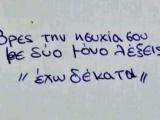 Βρες την ησυχία σου
με δύο μόνο λέξεις
"έχω δέκατα"